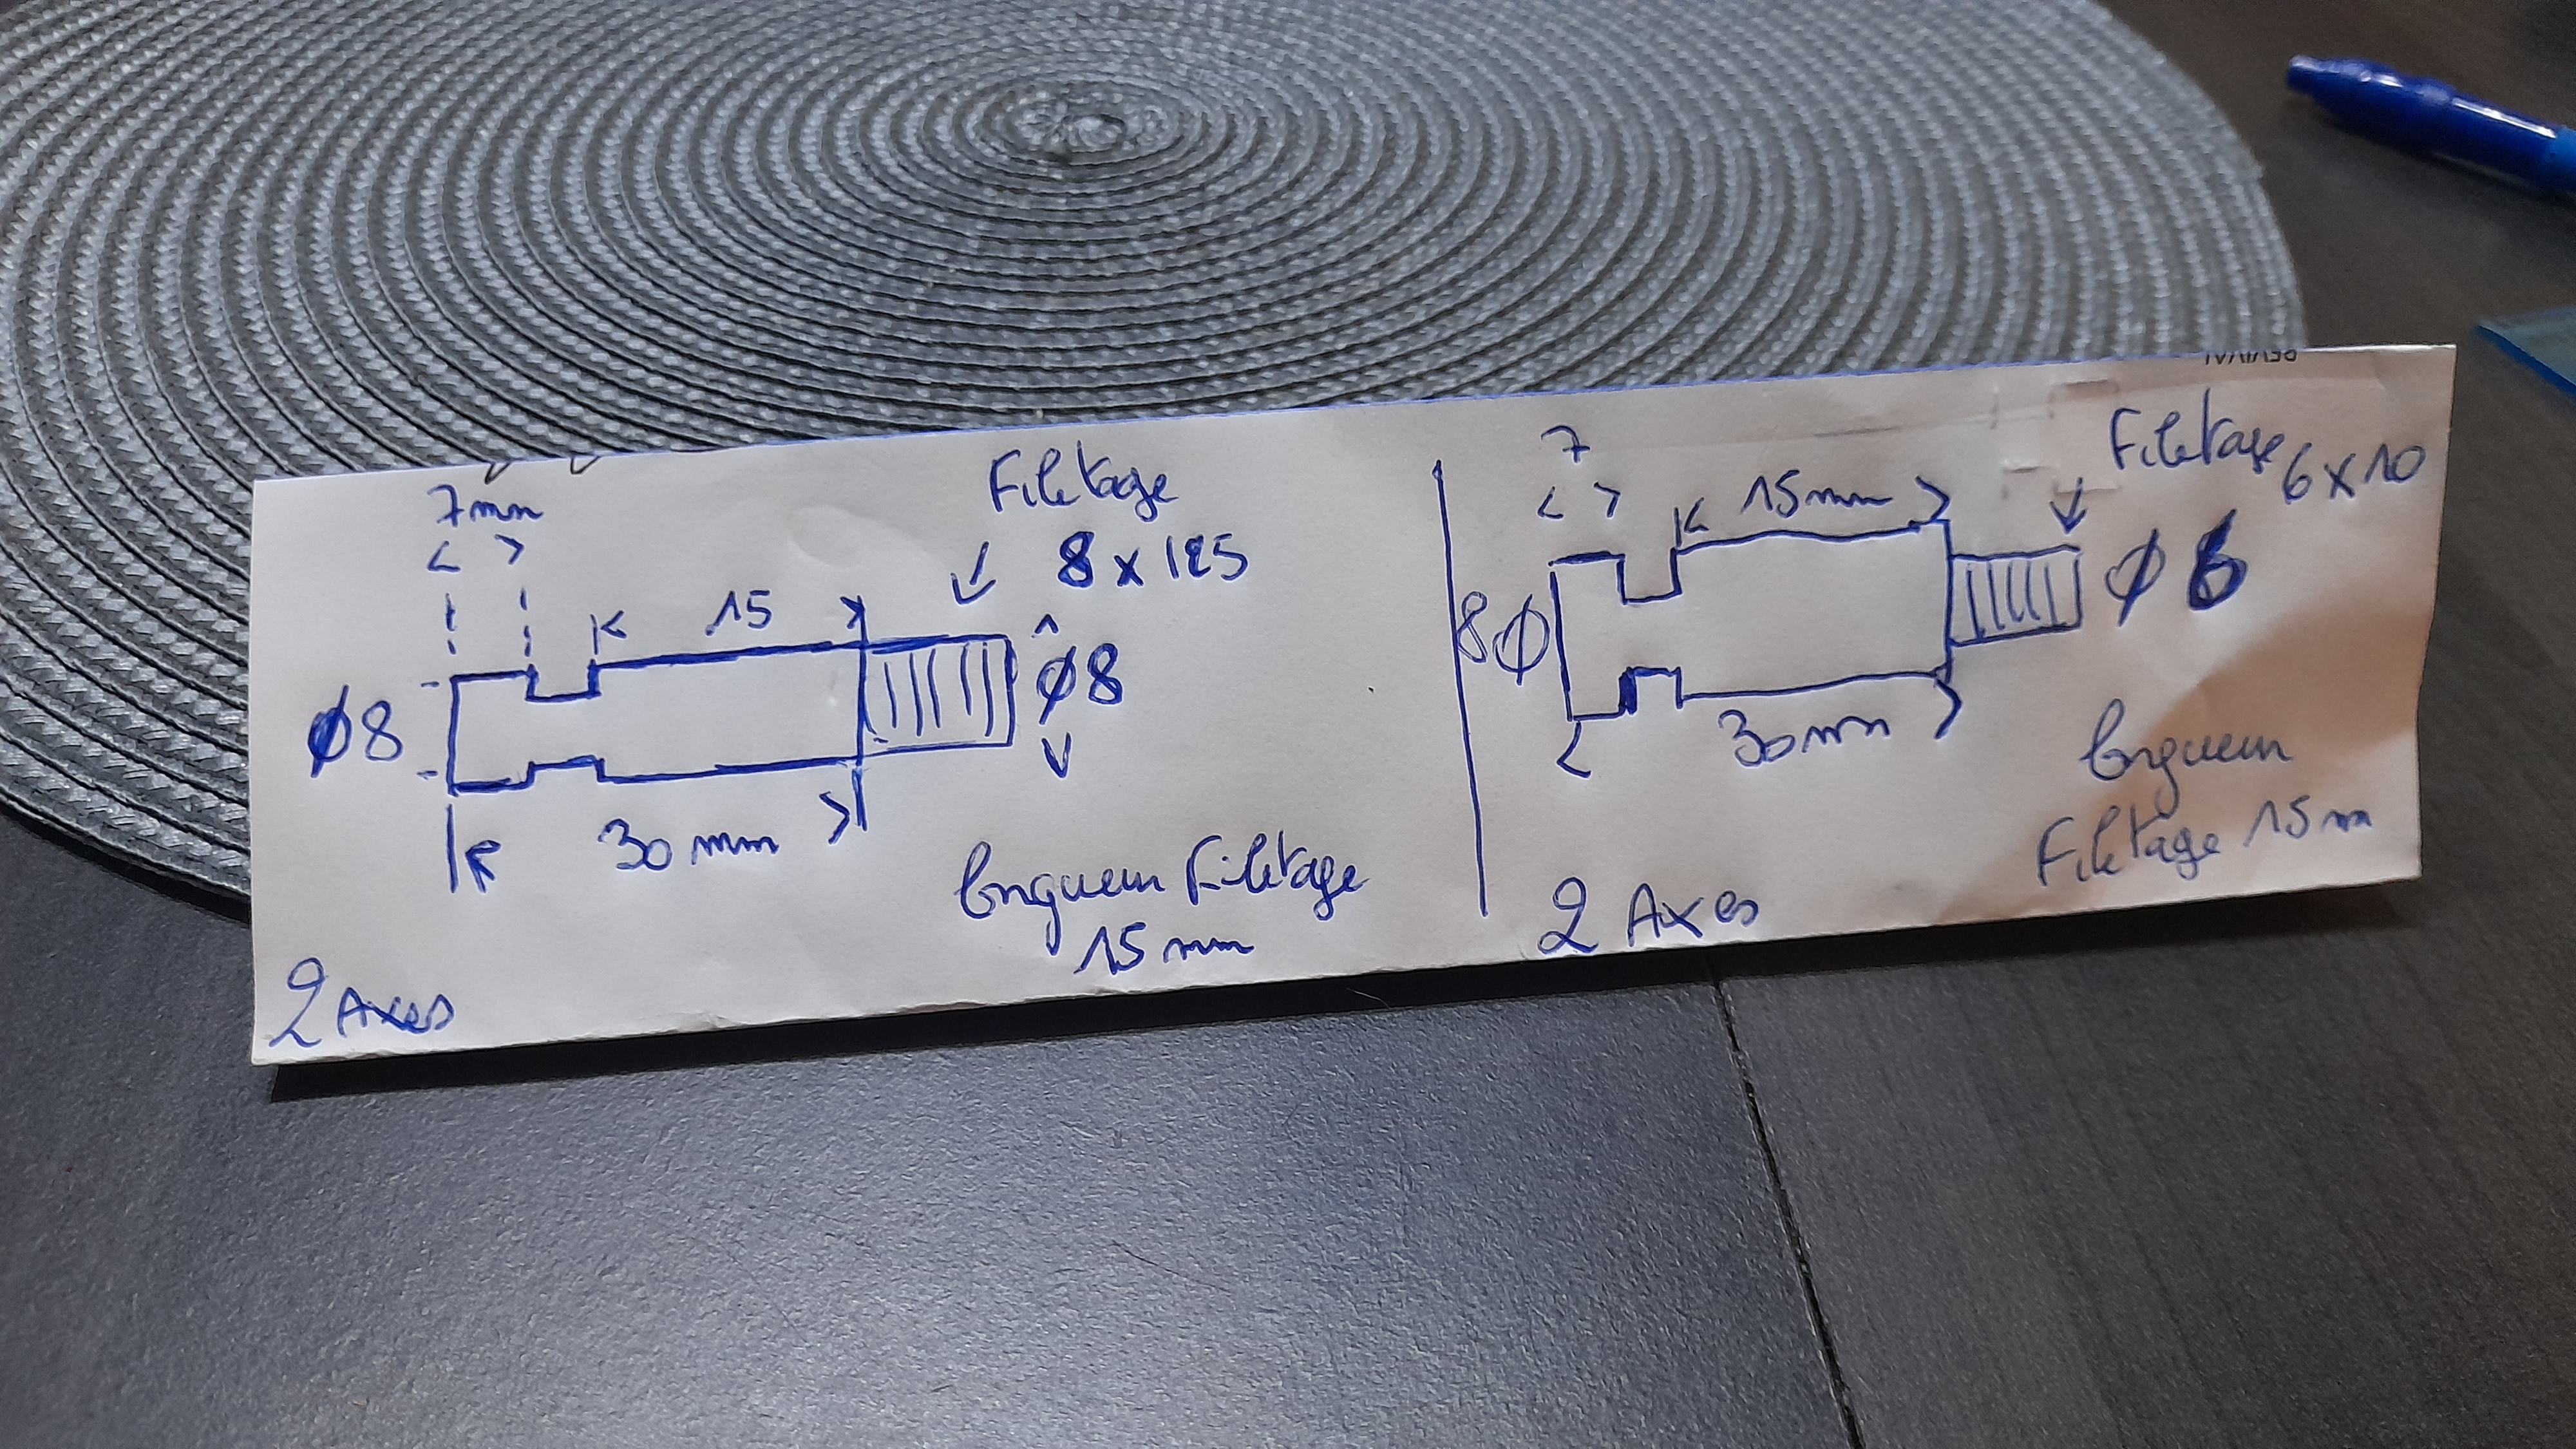 7mm
Filetage
8 x 125
15
ø8
ø8
30 mm
longueur Filetage
15 mm
2 Axes
7
15mm
Filetage 6 x 10
8ø
ø 6
30mm
longueur
Filetage 15m
2 Axes